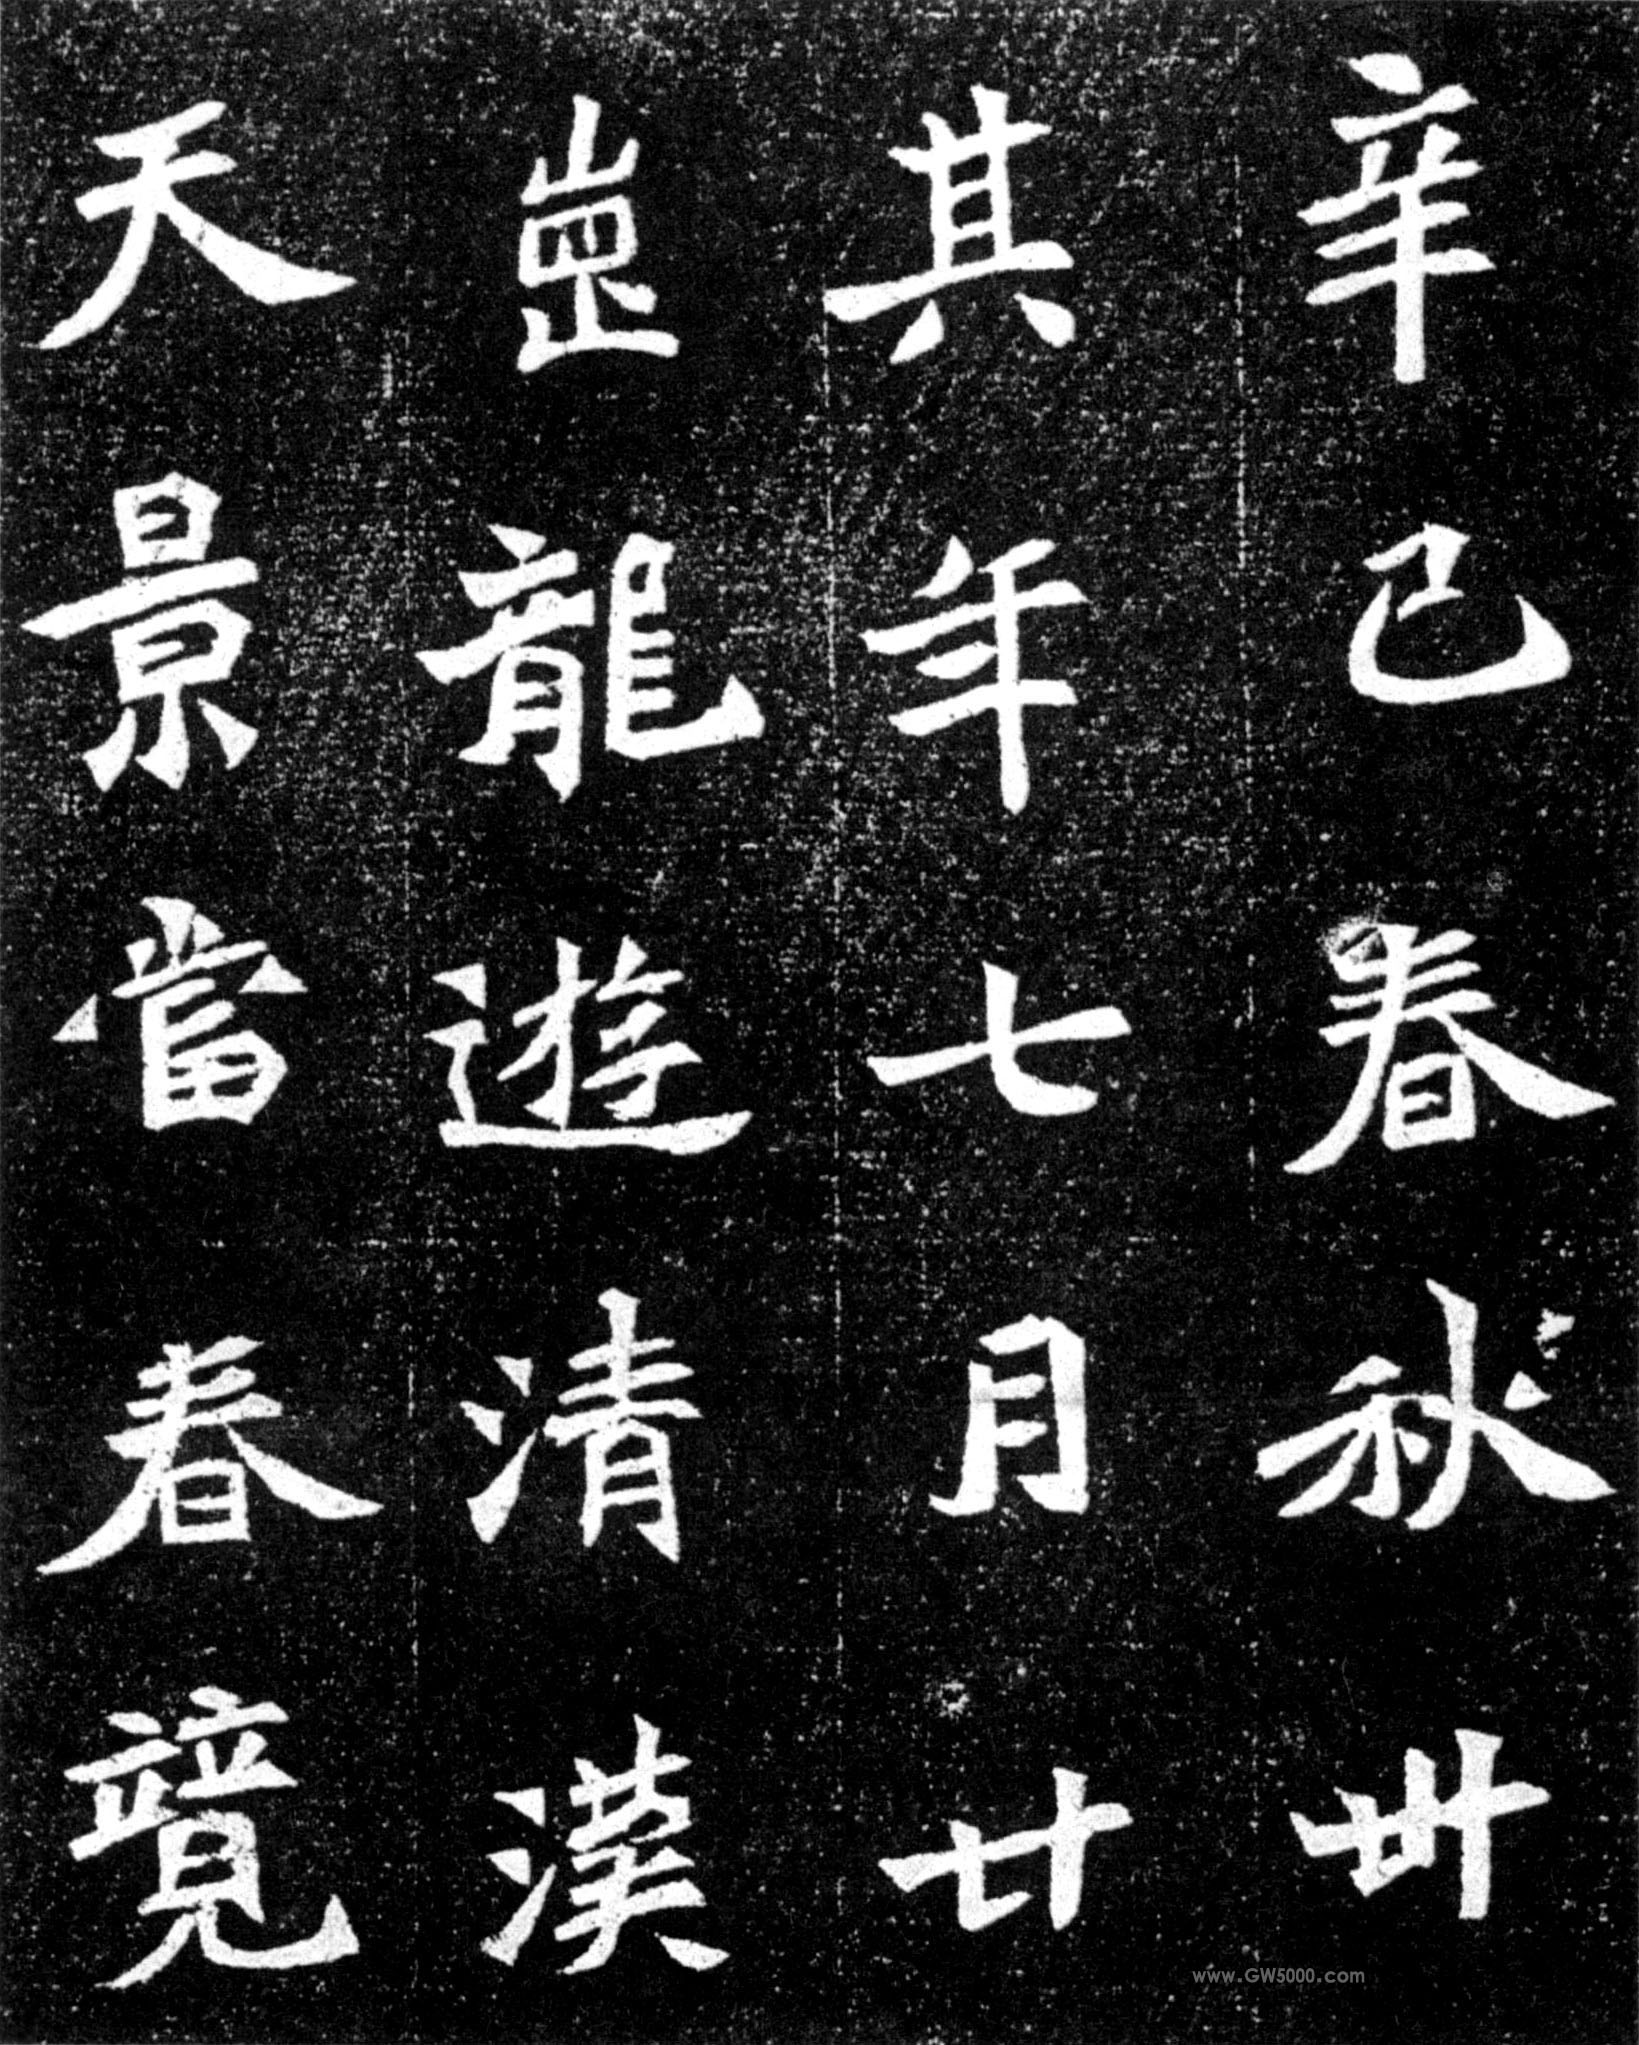 辛巳春秋卌
其年七月廿
崗龍遊清漢
天景當春競
www.GW5000.com